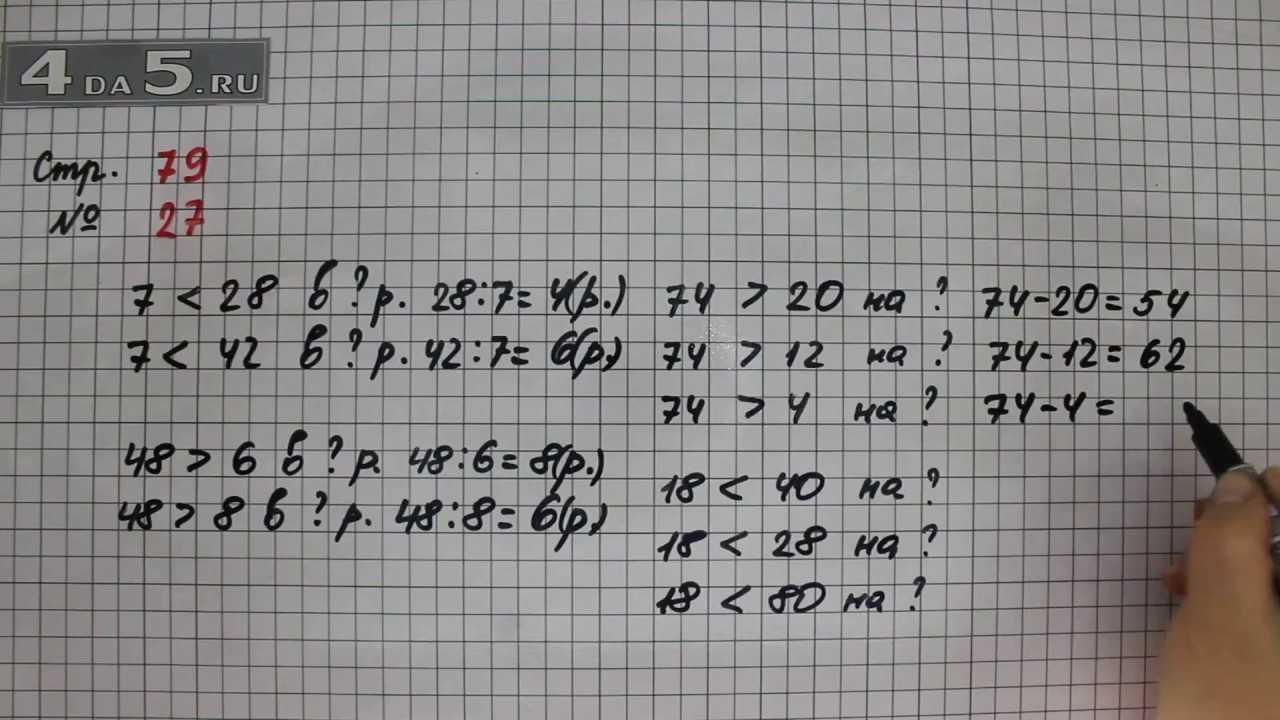 4DA5.RU
Стр. 79
№ 27
7 < 28 в ? р. 28:7= 4(р.)
7 < 42 в ? р. 42:7= 6(р)
48 > 6 в ? р. 48:6= 8(р.)
48 > 8 в ? р. 48:8= 6(р)
74 > 20 на ? 74-20=54
74 > 12 на ? 74-12=62
74 > 4 на ? 74-4=
18 < 40 на ?
18 < 28 на ?
18 < 80 на ?